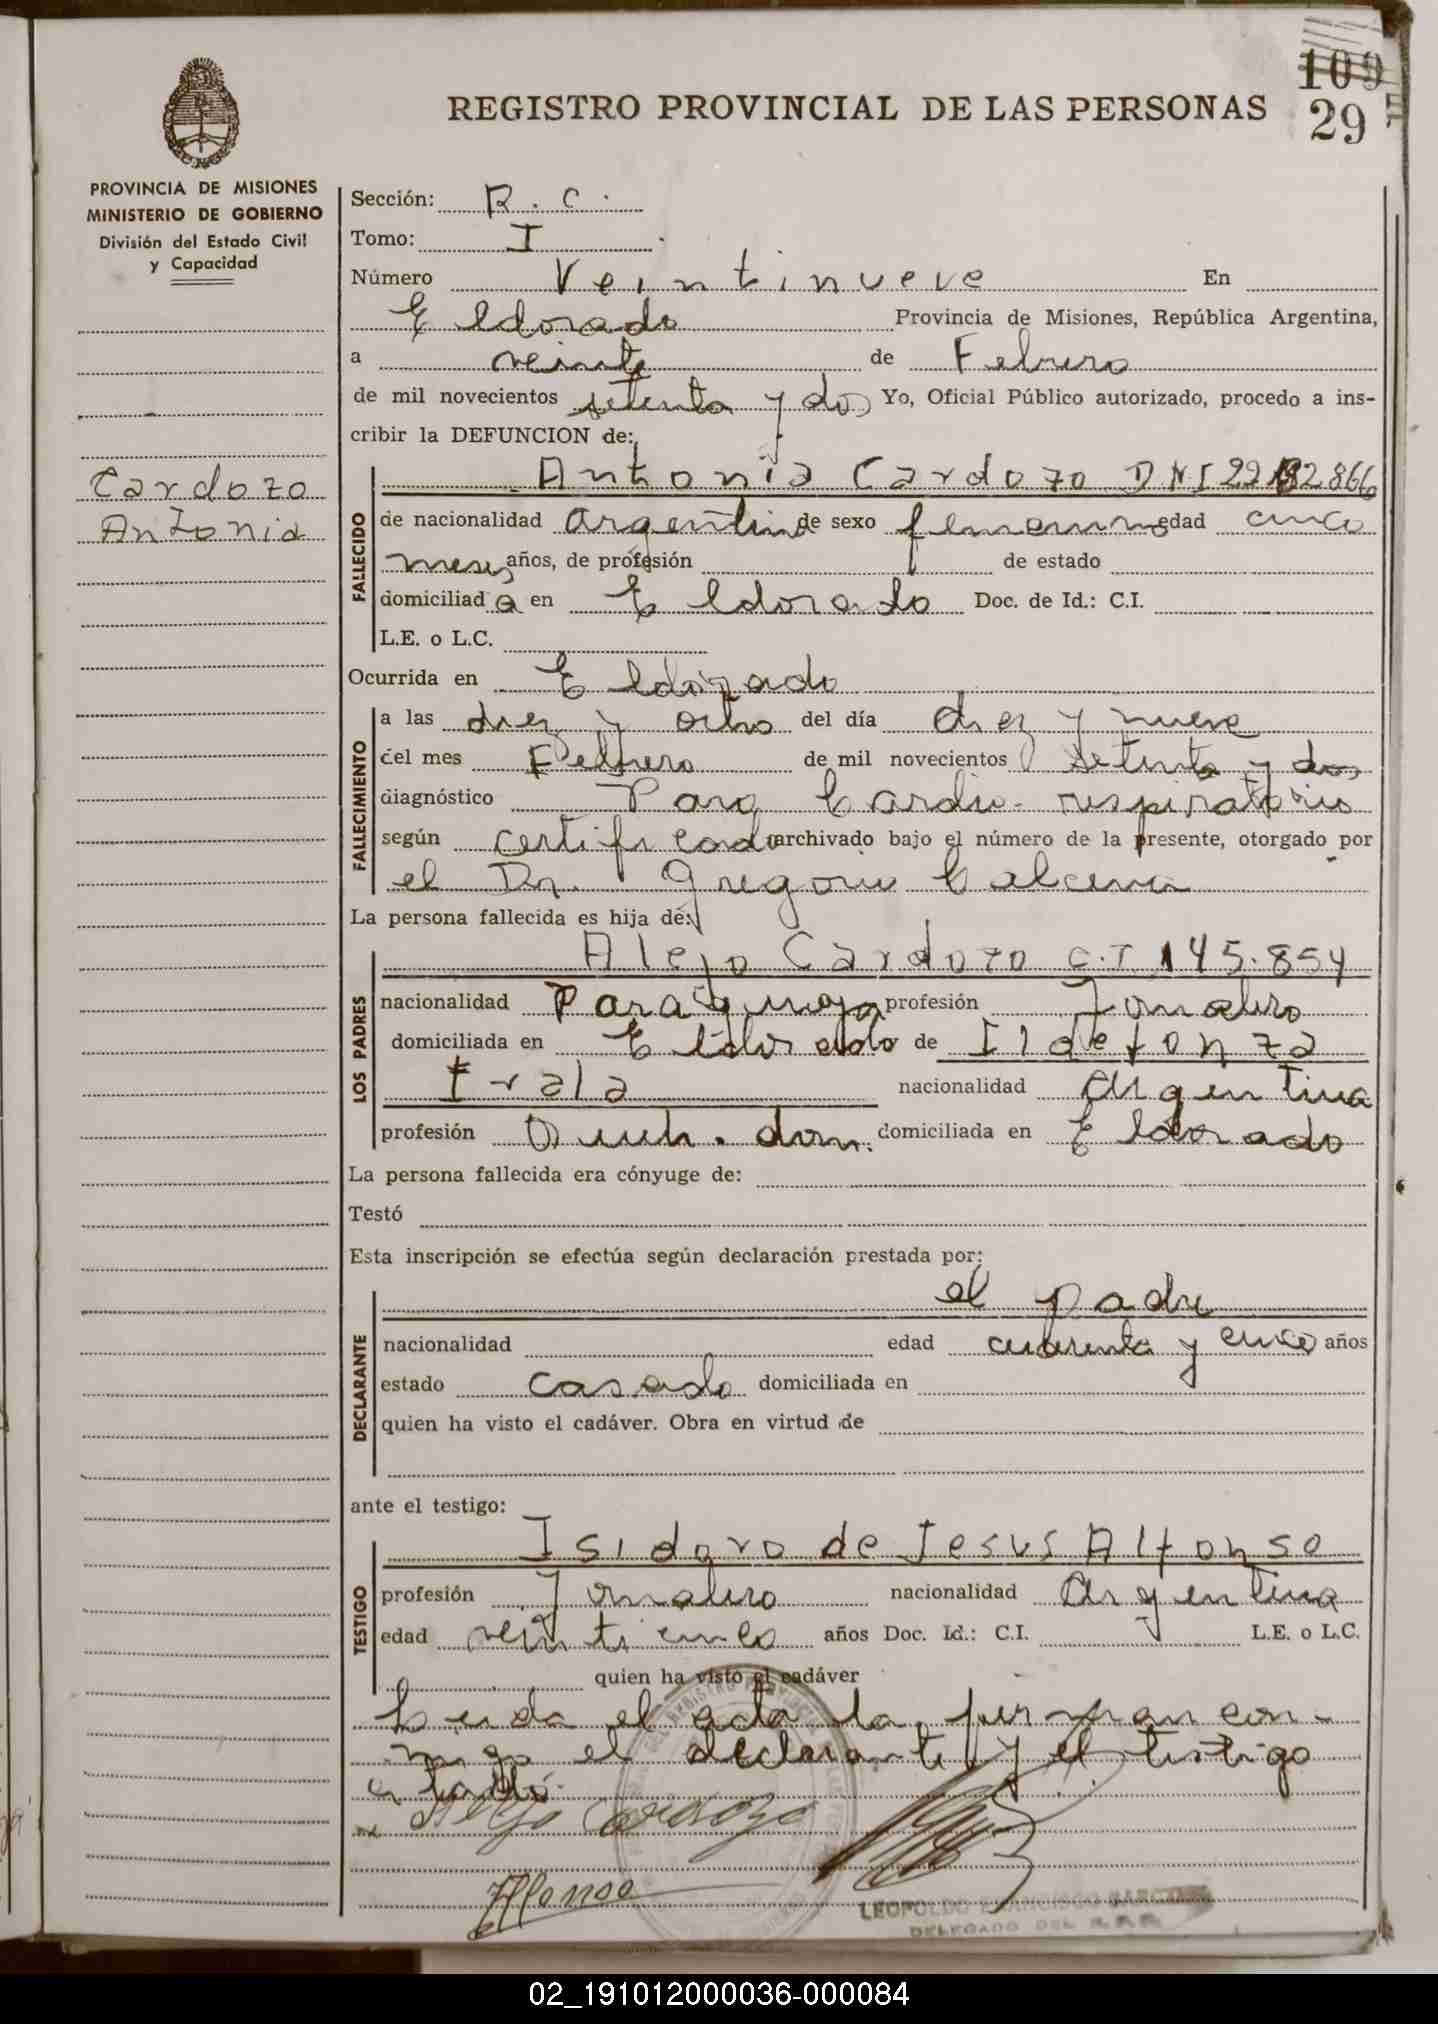 109
29
REGISTRO PROVINCIAL DE LAS PERSONAS
PROVINCIA DE MISIONES
MINISTERIO DE GOBIERNO
División del Estado Civil
y Capacidad
Cardozo
Antonia
Sección: R. C.
Tomo: I
Número Veintinueve En
Eldorado Provincia de Misiones, República Argentina,
a veinte de Febrero
de mil novecientos setenta y dos Yo, Oficial Público autorizado, procedo a ins-
cribir la DEFUNCION de:
FALLECIDO
Antonia Cardozo DNI
de nacionalidad argentina de sexo femenino edad cinco
meses años, de profesión de estado
domiciliad a en Eldorado Doc. de Id.: C.I.
L.E. o L.C.
Ocurrida en Eldorado
FALLECIMIENTO
a las diez y ocho del día diez y nueve
del mes Febrero de mil novecientos setenta y dos
diagnóstico Paro Cardio-respiratorio
según certificado archivado bajo el número de la presente, otorgado por
el Dr. Gregorio
La persona fallecida es hija de:
LOS PADRES
Alejo Cardozo C.I 145.854
nacionalidad Paraguaya profesión Jornalero
domiciliada en Eldorado de Ildefonza
Irala nacionalidad Argentina
profesión dom. domiciliada en Eldorado
La persona fallecida era cónyuge de:
Testó
Esta inscripción se efectúa según declaración prestada por:
DECLARANTE
el padre
nacionalidad edad cuarenta y cinco años
estado casado domiciliada en
quien ha visto el cadáver. Obra en virtud de
ante el testigo:
TESTIGO
Isidoro de Jesus Alfonso
profesión Jornalero nacionalidad Argentina
edad veinticinco años Doc. Id.: C.I. L.E. o L.C.
quien ha visto el cadáver
Leida el acta la firman con-
migo el declarante y el testigo
citado.
Alejo Cardozo
Alfonso
LEOPOLDO FRANCISCO
DELEGADO DEL R.P.P.
02_191012000036-000084